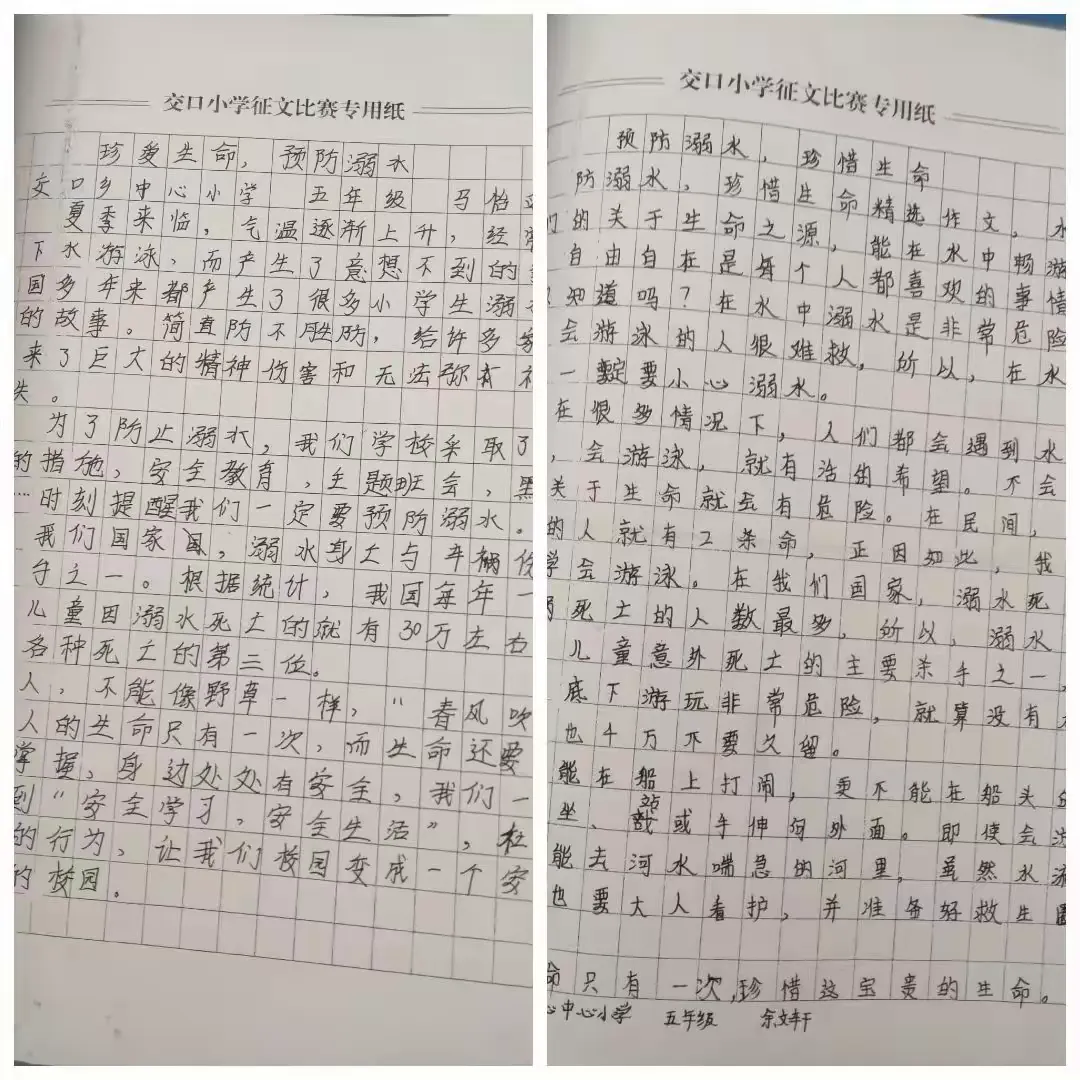 交口小学征文比赛专用纸
珍爱生命，预防溺水
交口乡中心小学 五年级 马怡
夏季来临，气温逐渐上升，经常
下水游泳，而产生了意想不到的
国多年来都产生了很多小学生溺
的故事。简直防不胜防，给许多家
来了巨大的精神伤害和无法弥有
失。
为了防止溺水，我们学校采取了
的措施，安全教育，主题班会，黑
……时刻提醒我们一定要预防溺水。
我们国家，溺水身亡与车祸
手之一。根据统计，我国每年
儿童因溺水死亡的就有30万左右
各种死亡的第三位。
人，不能像野草一样，“春风吹
人的生命只有一次，而生命还要
掌握，身边处处有安全，我们一
到“安全学习，安全生活”，杜
的行为，让我们校园变成一个安
的校园。
交口小学征文比赛专用纸
预防溺水，珍惜生命
防溺水，珍惜生命精选作文，水
们的关于生命之源，能在水中畅游
自由自在是每个人都喜欢的事情
知道吗？在水中溺水是非常危险
会游泳的人很难救，所以，在水
一定要小心溺水。
在很多情况下，人们都会遇到水
，会游泳，就有活的希望。不会
关于生命就会有危险。在民间，
的人就有2条命，正因如此，我
学会游泳。在我们国家，溺水死
死亡的人数最多，所以，溺水
儿童意外死亡的主要杀手之一，
底下游玩非常危险，就算没有
也千万不要久留。
能在船上打闹，更不能在船头
坐、站或手伸向外面。即使会
能去河水喘急的河里，虽然水
也要大人看护，并准备好救生圈
命只有一次，珍惜这宝贵的生命。
心中心小学 五年级 余文轩